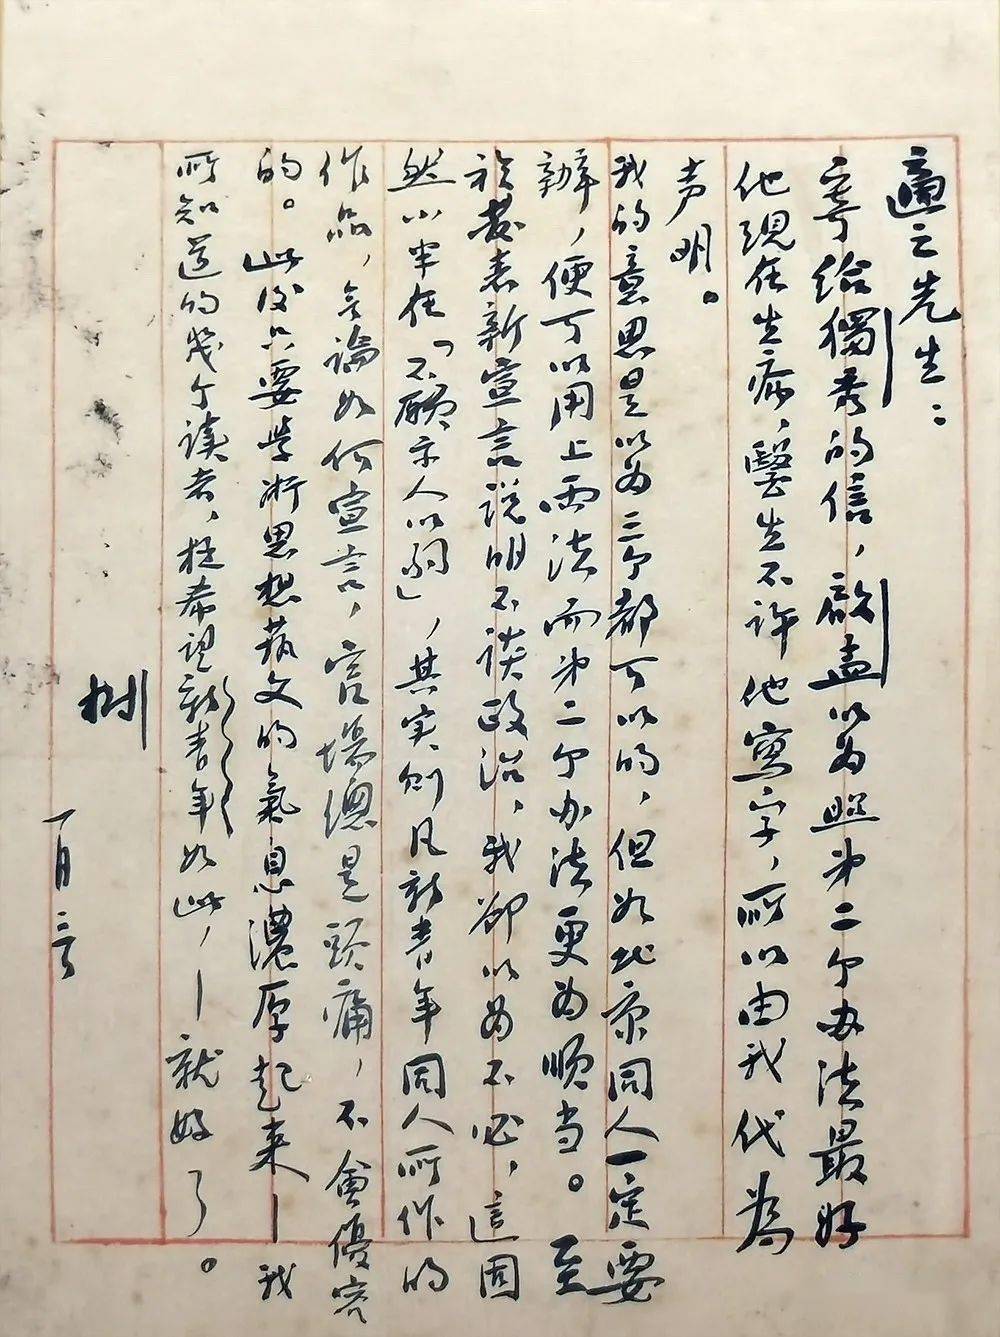 適之先生：
寄給獨秀的信，啟孟以為照第二个办法最好
他現在生病，醫生不許他寫字，所以由我代為
声明。
我的意思是以为三个都可以的，但如北京同人一定要
辦，便可以用上两法而第二个办法更为顺当。至
於發表新宣言說明不談政治，我卻以为不必，這固
然小半在「不願示人以弱」，其实則凡新青年同人所作的
作品，無論如何宣言，官場總是頭痛，不會優容
的。此後只要学術思想艺文的氣息濃厚起来—我
所知道的幾个读者，極希望新青年如此，—就好了。
树
一月三日